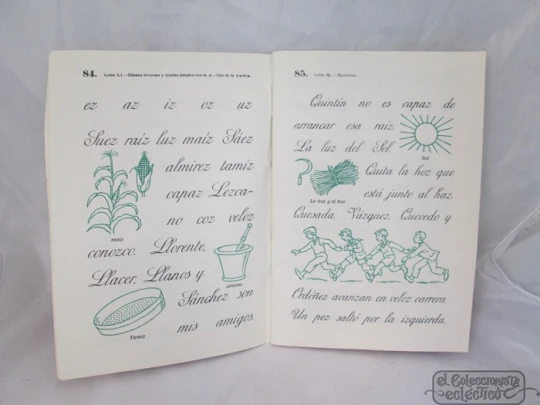 84.
ez az iz oz uz
Suez raíz luz maíz Sáez
almirez tamiz
capaz Lezca-
no coz veloz
MAÍZ
conozco. Llorente,
Llacer, Llanos y
ALMIREZ
Sánchez son
TAMIZ
mis amigos.
85.
Quintín no es capaz de
arrancar esa raíz.
La luz del Sol.
Sol
Quita la hoz que
La hoz y el haz
está junto al haz.
Quesada, Vázquez, Quevedo y
Ordóñez avanzan en veloz carrera.
Un pez saltó por la izquierda.
el Coleccionista
ecléctico